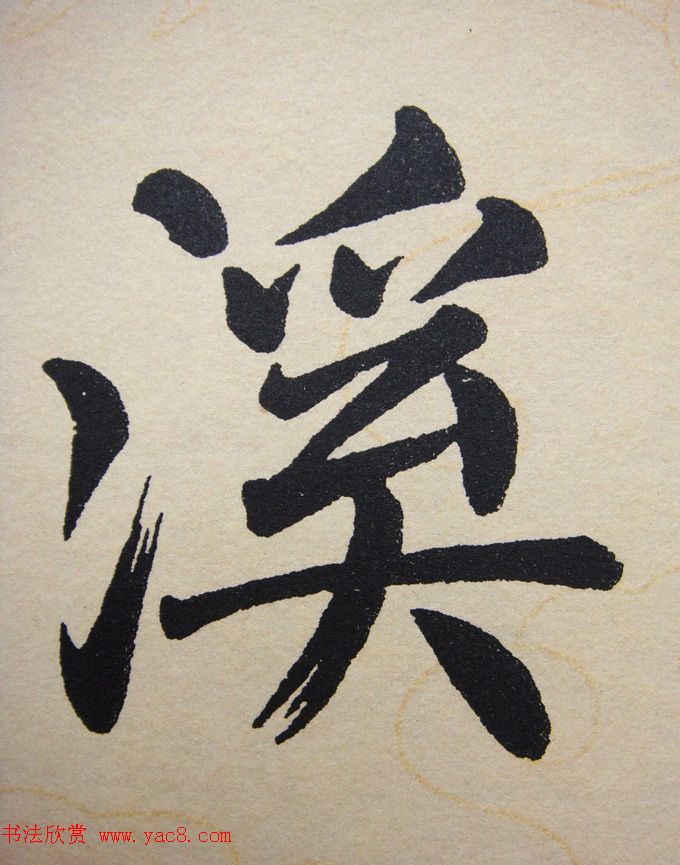 溪
书法欣赏 www.yac8.com